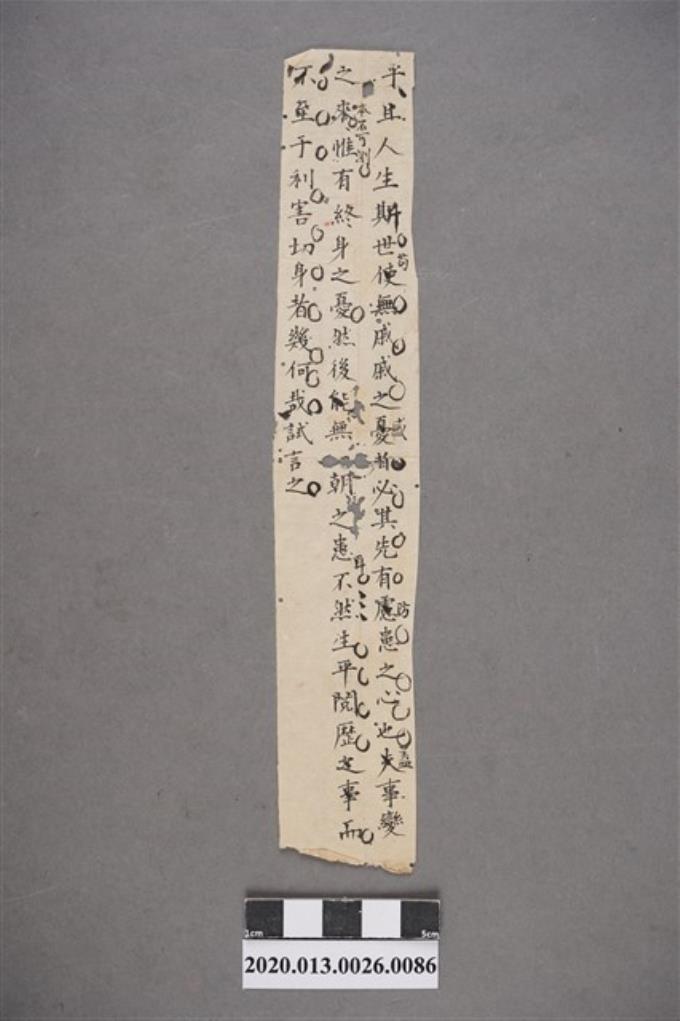 乎且人生期世使無戚戚之憂者必其先有慮患之心也夫事變
斤
苟
防
蓋
之來惟有終身之憂然後能無朝之患不然生平閱歷之事而
本不可測
耳
不至于利害切身者幾何哉試言之
1cm 5cm
2020.013.0026.0086